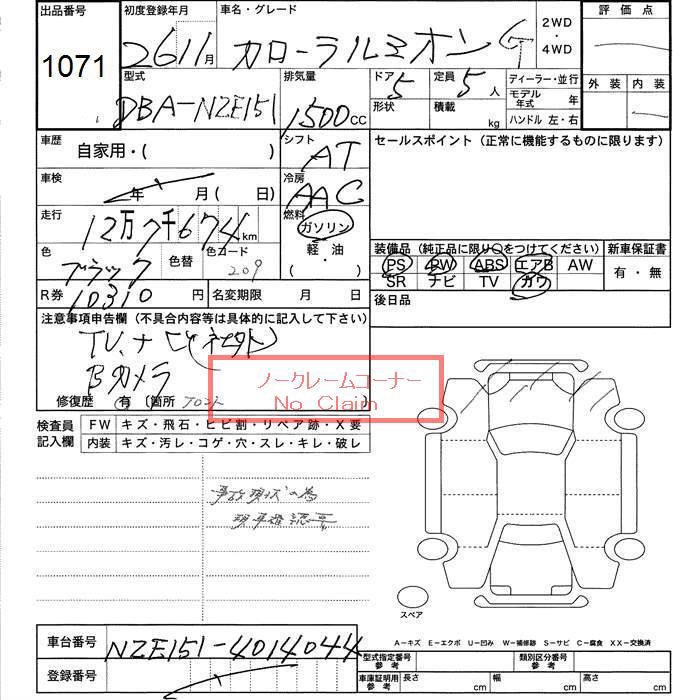 出品番号 初度登録年月 車名・グレード 2WD ・ 4WD 評価点
1071 26 11月 カローラルミオン G
外装 内装
型式 排気量 ドア 5 定員 5人 ディーラー・並行
モデル年式 年
DBA-NZE151 1500cc 形状 積載 kg ハンドル 左・右
車歴 自家用・( ) シフト AT セールスポイント (正常に機能するものに限ります)
車検 年 月 ( 日) 冷房 AAC
走行 12万7千674km 燃料 ガソリン 軽・油 ( ・ )
色 ブラック 色替 色コード 209
装備品 (純正品に限り○をつけてください) 新車保証書
PS PW ABS エアB AW 有・無
SR ナビ TV カワ
R券 10310円 名変期限 月 日 後日品
注意事項申告欄 (不具合内容等は具体的に記入して下さい)
TV、ナビ(社外)
Bカメラ
ノークレームコーナー
No Claim
修復歴 有 〔箇所 フロント
検査員記入欄 FW キズ・飛石・ヒビ割・リペア跡・X要
内装 キズ・汚レ・コゲ・穴・スレ・キレ・破レ
事故現状の為
現車確認要
スペア
A-キズ E-エクボ U-凹み W-補修跡 S-サビ C-腐食 XX-交換済
車台番号 NZE151-4014044
型式指定番号 参考 類別区分番号 参考
登録番号
車庫証明用 参考 長さ cm 幅 cm 高さ cm